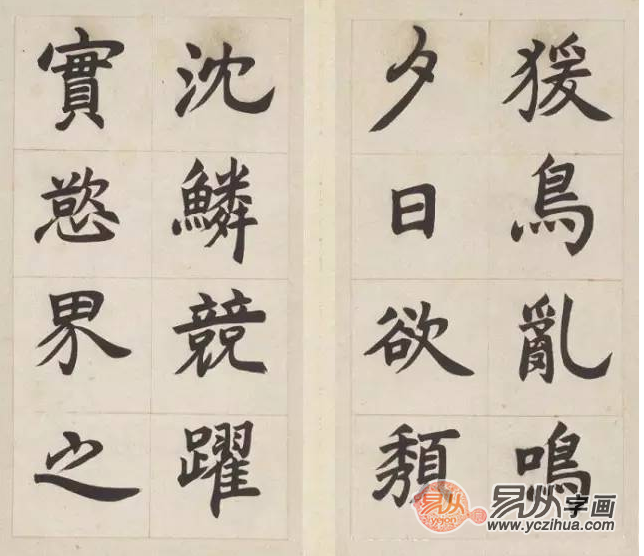 猨鳥亂鳴
夕日欲頹
沈鱗競躍
實慾界之
易从字画
www.yczihua.com